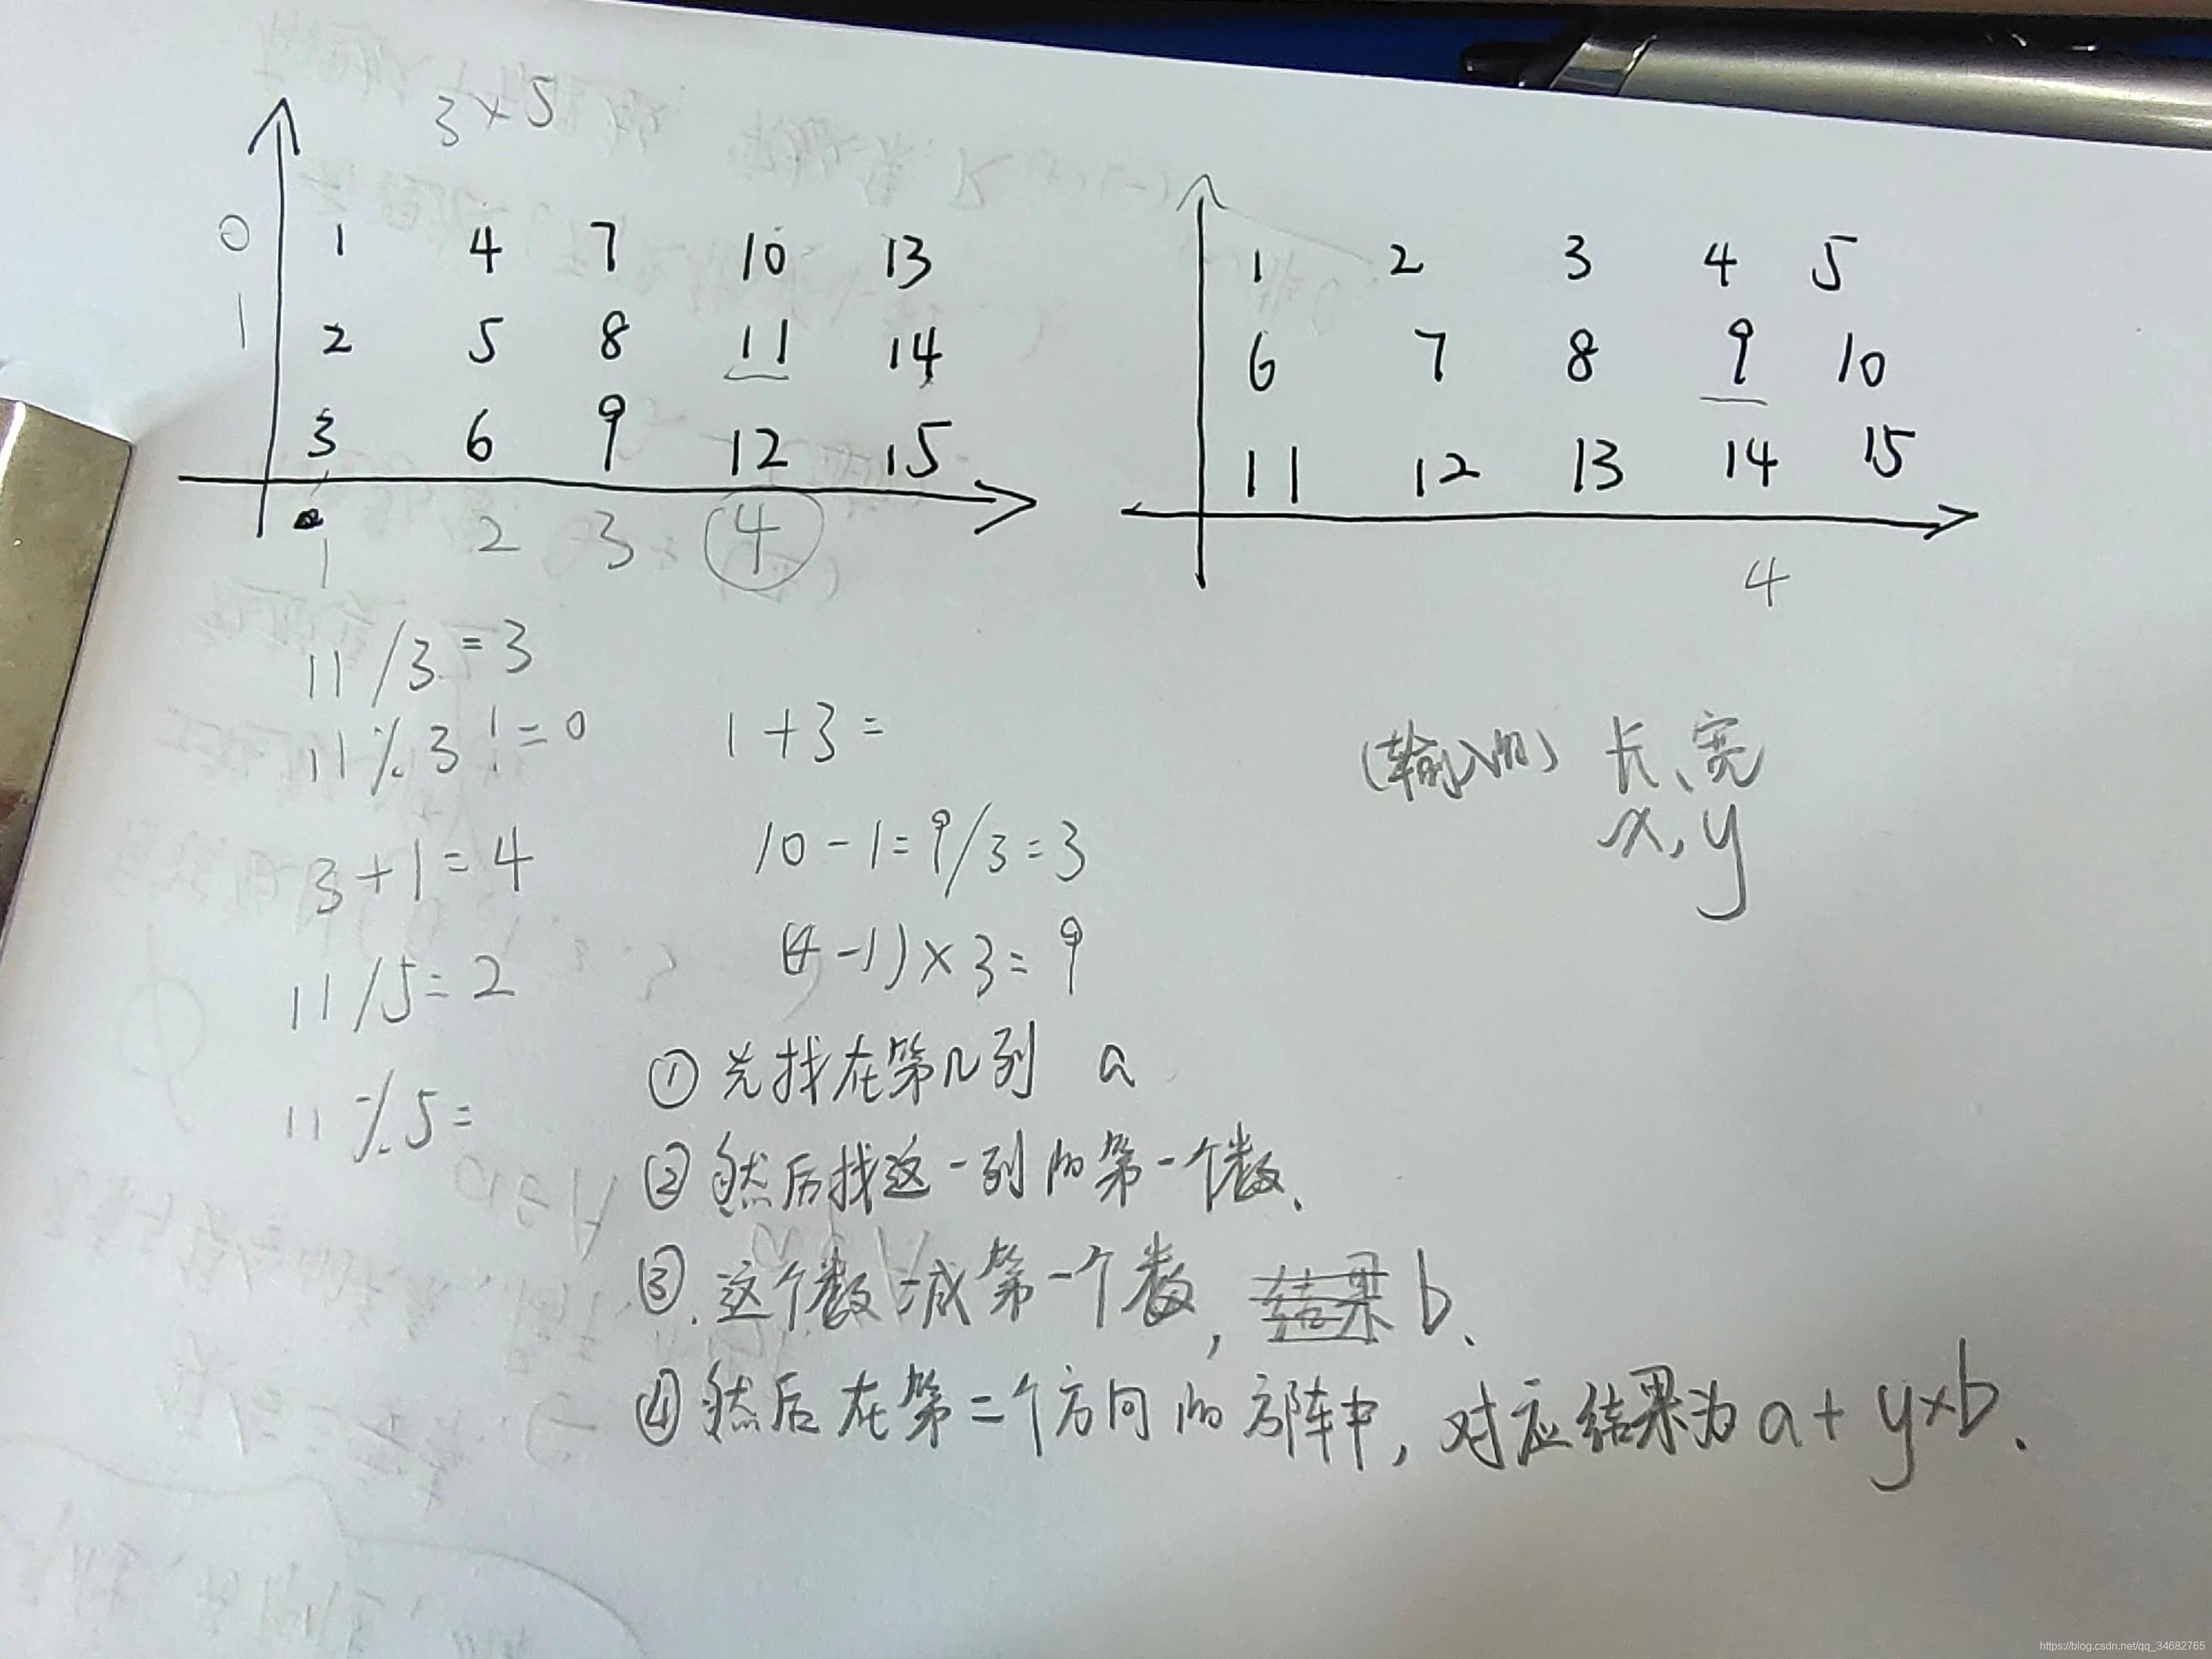 3×5
0 1 4 7 10 13
1 2 5 8 11 14
3 6 9 12 15
1 2 3 4
1 2 3 4 5
6 7 8 9 10
11 12 13 14 15
4
11/3=3
11%3!=0
3+1=4
11/5=2
11%5=
1+3=
10-1=9/3=3
(4-1)×3=9
(输入的) 长、宽
x,y
①先找在第几列 a
②然后找这一列的第一个数、
③.这个数减第一个数, 结果 b、
④然后在第二个方向的方阵中, 对应结果为a+y×b.
https://blog.csdn.net/qq_34682765